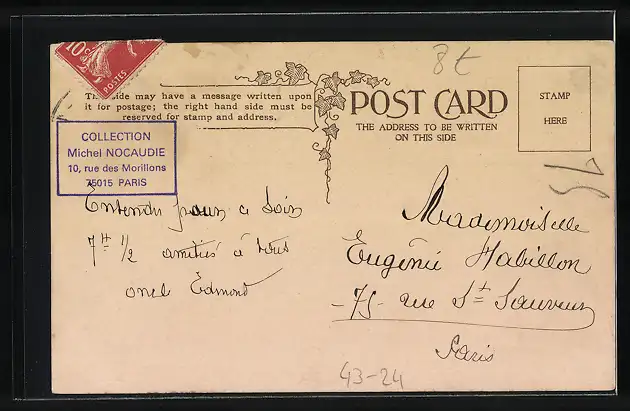 10c
POSTES
This side may have a message written upon
it for postage; the right hand side must be
reserved for stamp and address.
COLLECTION
Michel NOCAUDIE
10, rue des Morillons
75015 PARIS
Entendu pour ce Soir
7H 1/2 amitiés à tous
oncl Edmond
8t
POST CARD
THE ADDRESS TO BE WRITTEN
ON THIS SIDE
STAMP
HERE
15
Mademoiselle
Eugénie Habillon
- 75 - rue St Sauveur
Paris
43-24